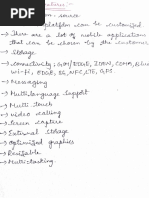 source
platform can be customized
→ There are a lot of mobile applications
that can be chosen by the customer
→ Storage
→ Connectivity: GSM/EDGE, IDEN, CDMA,
wi-fi, EDGE, 3G, NFC, LTE, GPS
→ Messaging
→ Multi language Support
→ Multi touch
→ video calling
→ Screen capture
→ External storage
→ Optimized graphics
→ Resizable
→ Multi-tasking